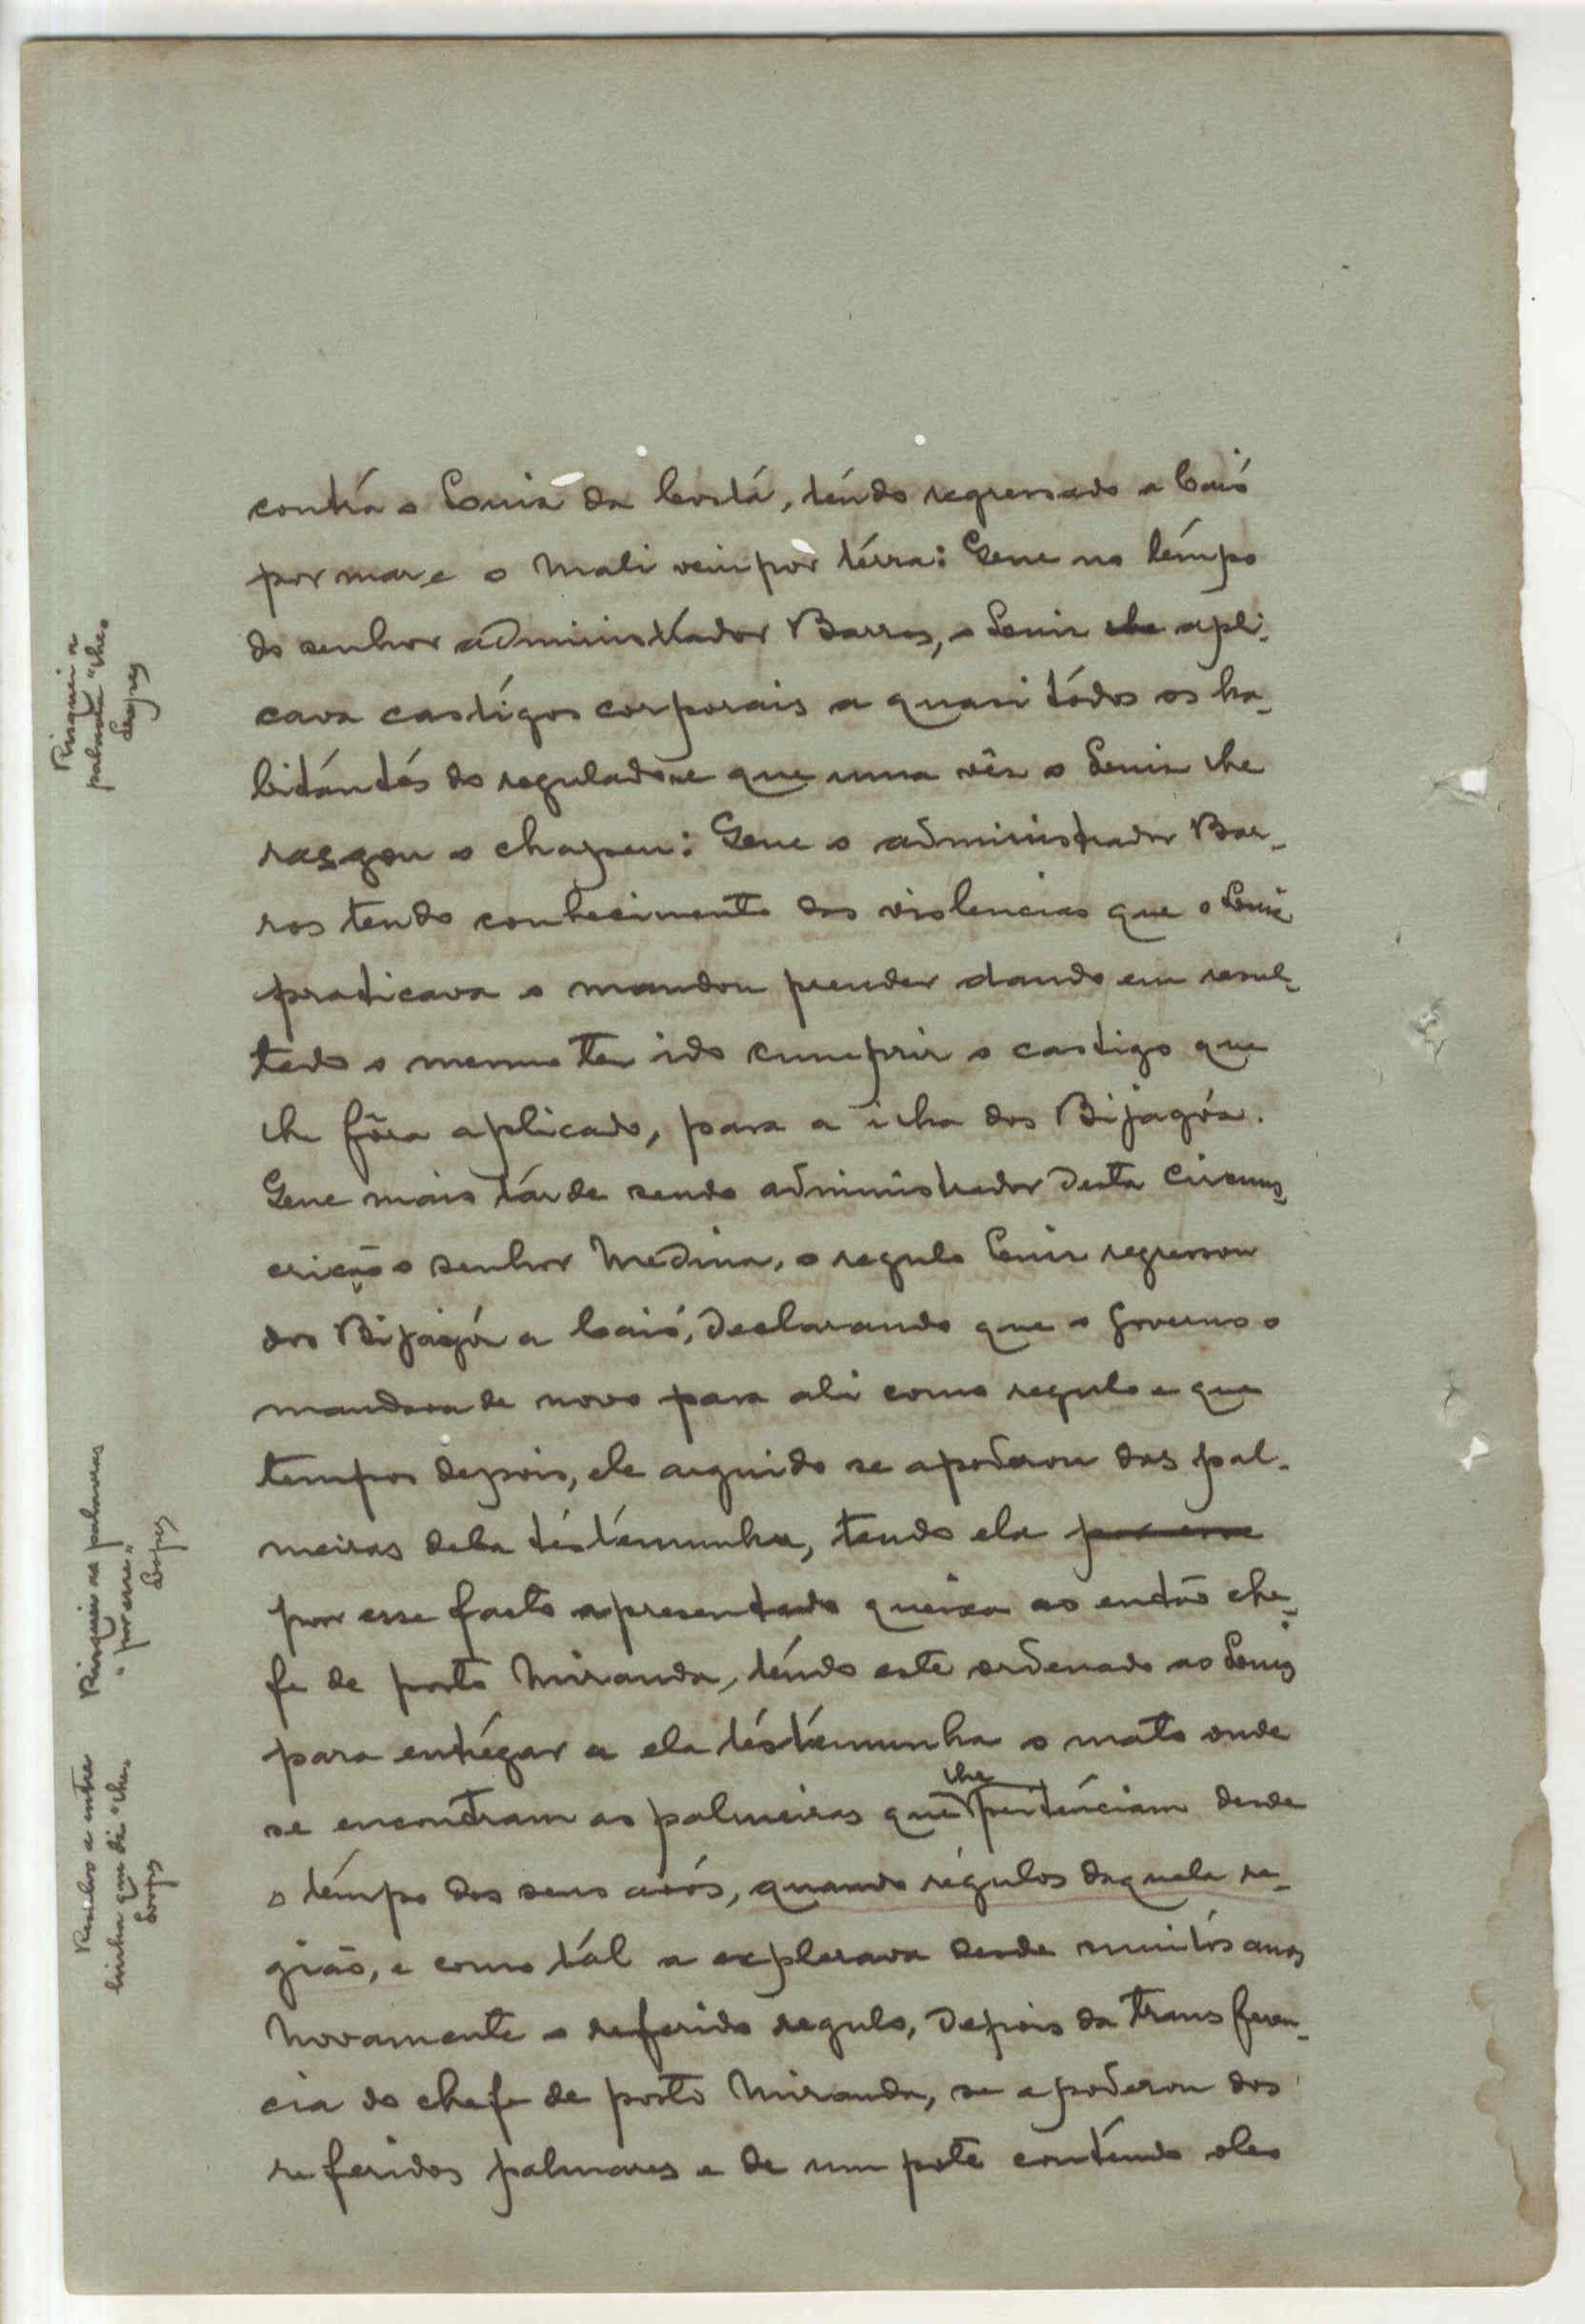 contra o Luiz da Costa, tendo regressado a Caió
por mar e o Mali veiu por térra: Que no tempo
do senhor administrador Barros, o Luiz lhe apli-
cava castigos corporais a quasi tódos os ha-
bitántes do regulado e que uma vês o Luiz lhe
rasgou o chapeu: Que o administrador Bar-
ros tendo conhecimento das violencias que o Luiz
praticava o mandou prender dando em resul-
tado o mesmo ter ido cumprir o castigo que
lhe fôra aplicado, para a ilha dos Bijagóz.
Que mais tárde sendo administrador desta Circuns-
crição o senhor Medina, o regulo Luiz regressou
dos Bijagóz a Caió, declarando que o Governo o
mandara de novo para ali como regulo e que
tempos depois, ele arguido se apoderou das pal-
meiras dela téstemunha, tendo ela por esse
por esse facto apresentado queixa ao então che-
fe de posto Miranda, tendo este ordenado ao Luiz
para entregar a ela téstemunha o mato onde
se encontram as palmeiras que lhe pertenciam desde
o témpo dos seus avós, quando régulos daquela re-
gião, e como tál a explorava desde muitos anos
Novamente o referido regulo, depois da transferen-
cia do chefe de posto Miranda, se apoderou dos
referidos palmares e de um pote contendo oleo
Risquei a
palavra "lhe"
Lopes
Risquei as palavras
"por esse"
Lopes
Resalvo a entre
linha que diz "lhe"
Lopes